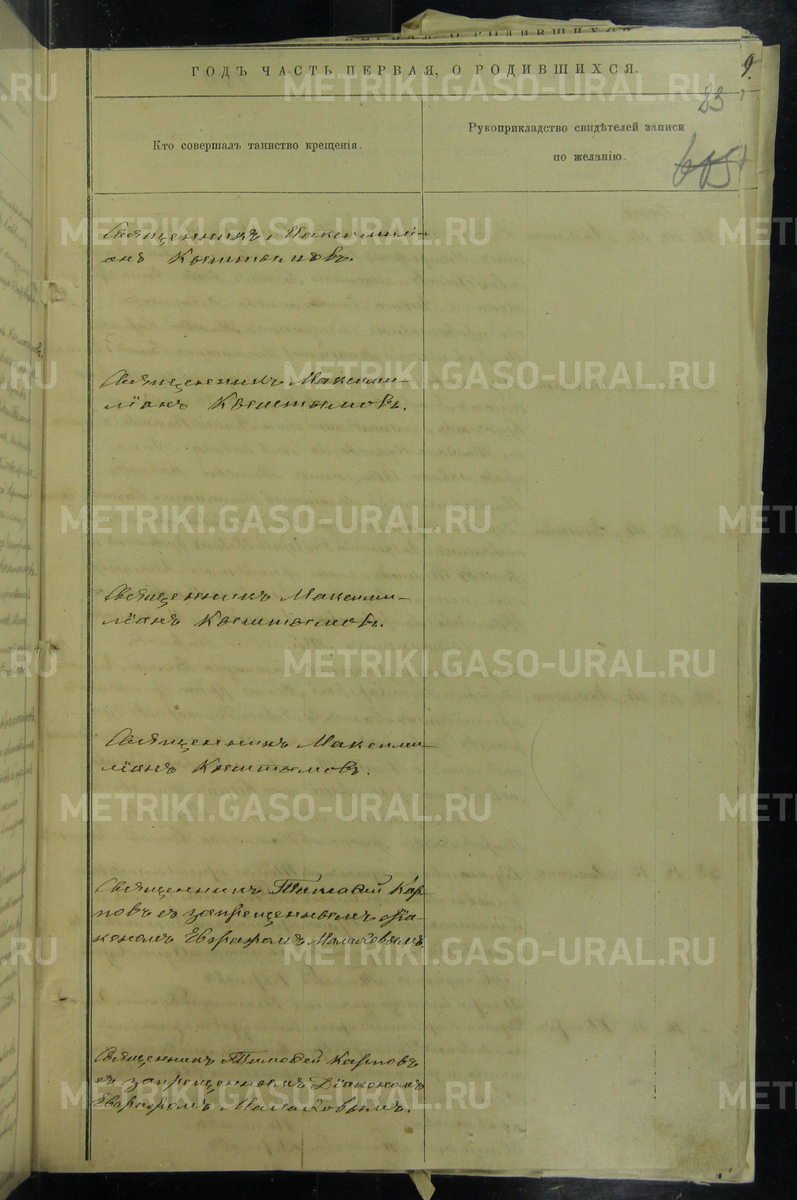 ГОДЪ ЧАСТЬ ПЕРВАЯ, О РОДИВШИХСЯ.
9.
83
Кто совершалъ таинство крещенія.
Рукоприкладство свидѣтелей записи
по желанію.
Священникъ Максимилі-
анъ Кыштымовъ.
Священникъ Максими-
ліанъ Кыштымовъ.
Священникъ Максими-
ліанъ Кыштымовъ.
Священникъ Максими-
ліанъ Кыштымовъ.
Священникъ Тимоѳей Кар-
повъ съ запрещеннымъ діа-
кономъ Евграфомъ
Священникъ Тимоѳей Карповъ
съ запрещеннымъ Діакономъ
Евграфомъ
METRIKI.GASO-URAL.RU